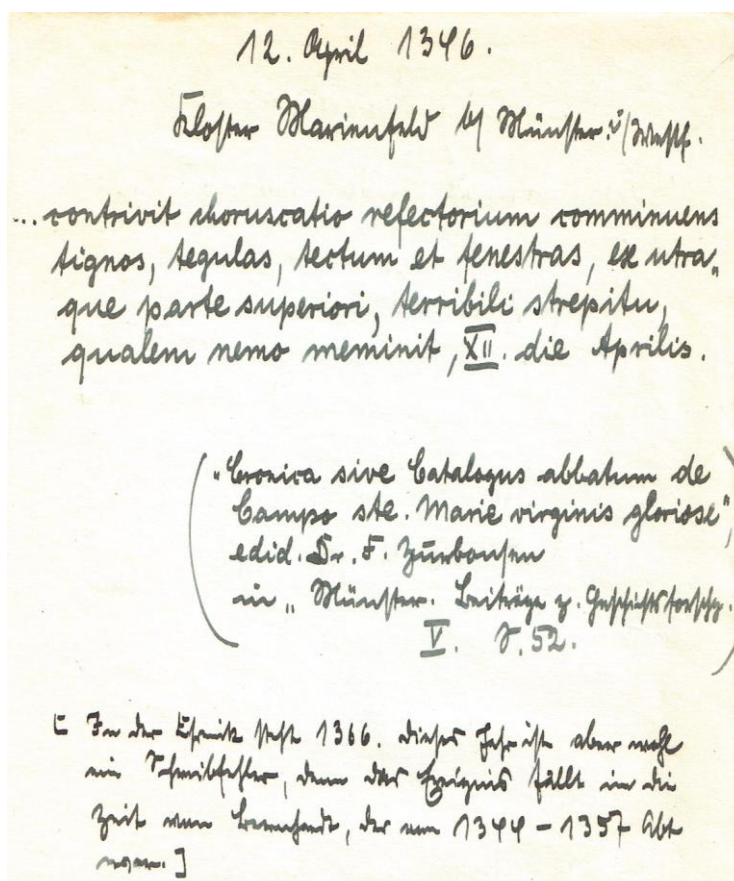 12. April 1346.
Kloster Marienfeld b/ Münster i/Westf.
... contrivit choruscatio refectorium comminuens
tignos, tegulas, tectum et fenestras, ex utra„
que parte superiori, terribili strepitu,
qualem nemo meminit, XII. die Aprilis.
(„Cronica sive Catalogus abbatum de
Campo ste. Marie virginis gloriose",
edid. Dr. F. Zurbonsen
in „Münster. Beiträge z. Geschichtsforschg.
V. S. 52.)
[ In der Chronik steht 1366. Dieses Jahr ist aber wohl
ein Schreibfehler, denn das Ereignis fällt in die
Zeit von Bernhardt, der von 1344 – 1357 Abt
war. ]